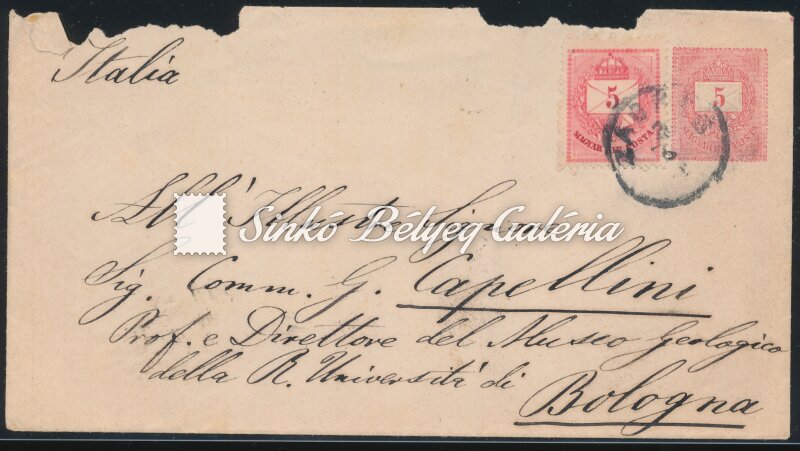 Italia
5
MAGYAR POSTA
5
MAGYAR POSTA
All' Illustre Signore
Sinkó Bélyeg Galéria
Sig. Comm. G. Capellini
Prof. e Direttore del Museo geologico
della R. Università di
Bologna